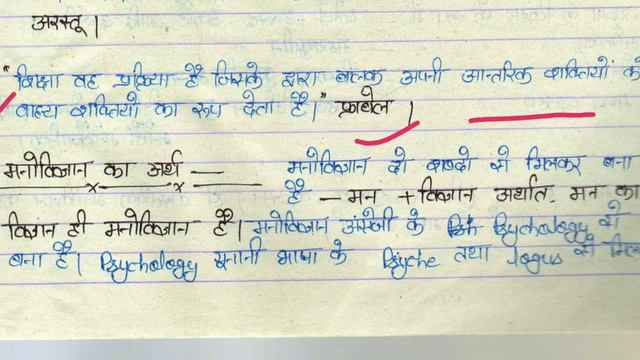 अरस्तू।
"शिक्षा वह प्रक्रिया है जिसके द्वारा बालक अपनी आन्तरिक शक्तियों को
वाह्य शक्तियों का रूप देता है।" फ्राबेल।
मनोविज्ञान का अर्थ — मनोविज्ञान दो शब्दो से मिलकर बना
है — मन + विज्ञान अर्थात. मन का
विज्ञान ही मनोविज्ञान है। मनोविज्ञान अंग्रेजी के Psychology से
बना है। Psychology यूनानी भाषा के Psyche तथा logus से